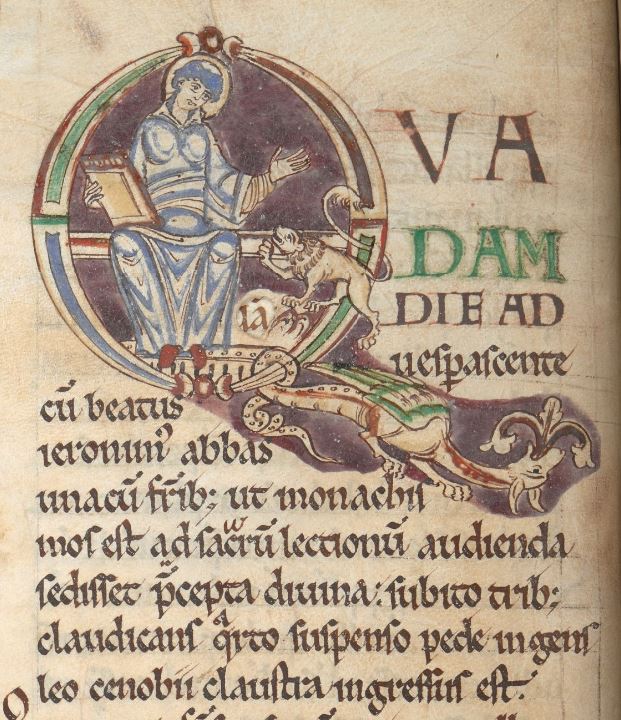 QVA
DAM
iā DIE AD
uesꝑascente
cū beatus
ieronim' abbas
unacū fr̄ib; ut monachis
mos est ad sacrū lectionū audienda
sedisset p̄cepta diuina: subito trib;
claudicans qͣrto suspenso pede ingens
leo cenobii claustra ingressus est.